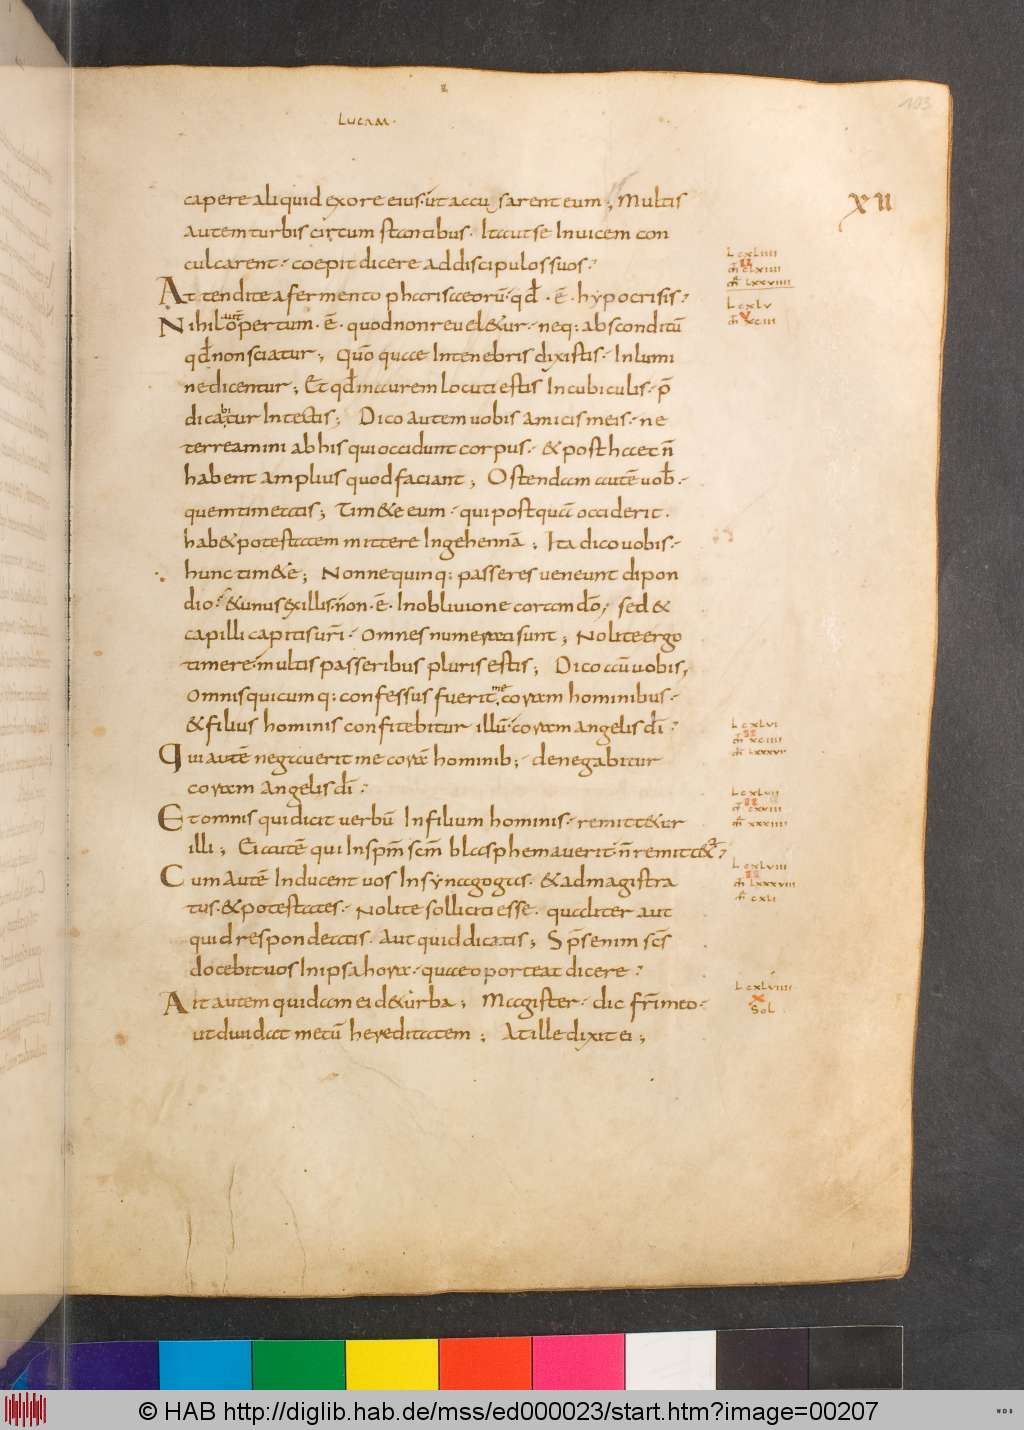 LUCAM·
103
capere aliquid ex ore eius· ut accusarent eum ; Multis
XII
autem turbis circum stantibus· Ita ut se Inuicem con
culcarent· coepit dicere ad discipulos suos·
L cxLIIII
II
m̄ cLxIIII
m̄r̄ LxxVIIII
At tendite a fermento pharisaeorū· qd̄ · ē · hypocrisis·
L cxLV
V
m̄ xcIII
Nihil autē opertum · ē · quod non reuel&ur· neq: absconditū
qd̄ non sciatur ; Quō quae In tenebris dixistis· In lumi
ne dicentur ; Et qd̄ in aurem locuti estis In cubiculis· p̄
dicabitur In tectis ; Dico autem uobis amicis meis· ne
terreamini ab his qui occidunt corpus· & post haec n̄
habent amplius quod faciant ; Ostendam autē uob̄·
quem timeatis ; Tim&e eum· qui postquā occiderit·
hab& potestatem mittere In gehennā ; Ita dico uobis·
hunc tim&e ; Nonne quinq: passeres ueneunt dipon
dio· & unus ex illis· non · ē · In obliuione coram dō, sed &
capilli capitis ur̄i· omnes numerati sunt ; Nolite ergo
timere· multis passeribus pluris estis ; Dico aū uobis,
omnis quicumq: confessus fuerit me coram hominibus·
& filius hominis confitebitur illū· coram angelis dī·
L cxLVI
II
m̄ xcIIII
m̄ LxxxVI
Qui autē negauerit me corā hominib; · denegabitur
coram Angelis dī·
L cxLVII
II
m̄ cxVIIII
m̄r̄ xxxIIII
Et omnis qui dicit uerbū In filium hominis· remitt&ur
illi ; Ei autē qui In spm̄ scm̄ blasphemauerit· n̄ remitt&r̄·
L cxLVIII
II
m̄ LxxxVIII
m̄r̄ cxLI
Cum Autē Inducent uos In synagogas· & ad magistra
tus· & potestates· Nolite solliciti esse· qualiter aut
quid respondeatis· Aut quid dicatis ; Sp̄s enim sc̄s
docebit uos In ipsa hora· quae oporteat dicere·
L cxLVIIII
x
Sol
Ait autem quidam ei de turba ; Magister· dic fr̄i meo·
ut diuidat mecū hereditatem ; At ille dixit ei ;
© HAB http://diglib.hab.de/mss/ed000023/start.htm?image=00207
WDB